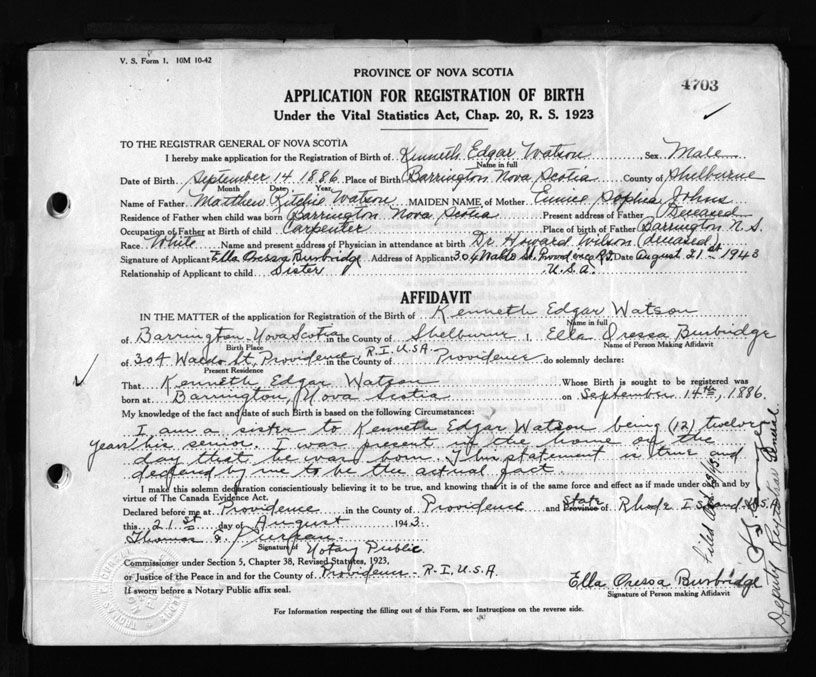 V. S. Form 1. 10M 10-42
PROVINCE OF NOVA SCOTIA
4703
APPLICATION FOR REGISTRATION OF BIRTH
Under the Vital Statistics Act, Chap. 20, R. S. 1923
TO THE REGISTRAR GENERAL OF NOVA SCOTIA
I hereby make application for the Registration of Birth of Kenneth Edgar Watson Sex Male
Name in full
Date of Birth September 14 1886 Place of Birth Barrington Nova Scotia County of Shelburne
Month Date Year
Name of Father Matthew Ritchie Watson MAIDEN NAME of Mother Eunice Sophia Johns
Residence of Father when child was born Barrington Nova Scotia Present address of Father Deceased
Occupation of Father at Birth of child Carpenter Place of birth of Father Barrington N.S.
Race White Name and present address of Physician in attendance at birth Dr. Howard Wilson (deceased)
Signature of Applicant Ella Oressa Burbridge Address of Applicant 304 Waldo St. Providence R.I. Date August 21st 1943
Relationship of Applicant to child Sister U.S.A.
AFFIDAVIT
IN THE MATTER of the application for Registration of the Birth of Kenneth Edgar Watson
Name in full
of Barrington Nova Scotia in the County of Shelburne I, Ella Oressa Burbridge
Birth Place Name of Person Making Affidavit
of 304 Waldo St, Providence, R.I, U.S.A. in the County of Providence do solemnly declare:
Present Residence
That Kenneth Edgar Watson Whose Birth is sought to be registered was
born at Barrington, Nova Scotia on September 14th, 1886.
My knowledge of the fact and date of such Birth is based on the following Circumstances:
I am a sister to Kenneth Edgar Watson being (12) twelve
years his senior. I was present in the home on the
day that he was born. This statement is true and
declared by me to be the actual fact
I make this solemn declaration conscientiously believing it to be true, and knowing that it is of the same force and effect as if made under oath and by
virtue of The Canada Evidence Act.
Declared before me at Providence in the County of Providence and State Province of Rhode Island U.S.A.
this 21st day of August 1943.
Thomas
Signature of Notary Public
Commissioner under Section 5, Chapter 38, Revised Statutes, 1923,
or Justice of the Peace in and for the County of Providence - R.I., U.S.A.
If sworn before a Notary Public affix seal.
Ella Oressa Burbridge
Signature of Person making Affidavit
For Information respecting the filling out of this Form, see Instructions on the reverse side.
Filed
Deputy Registrar General